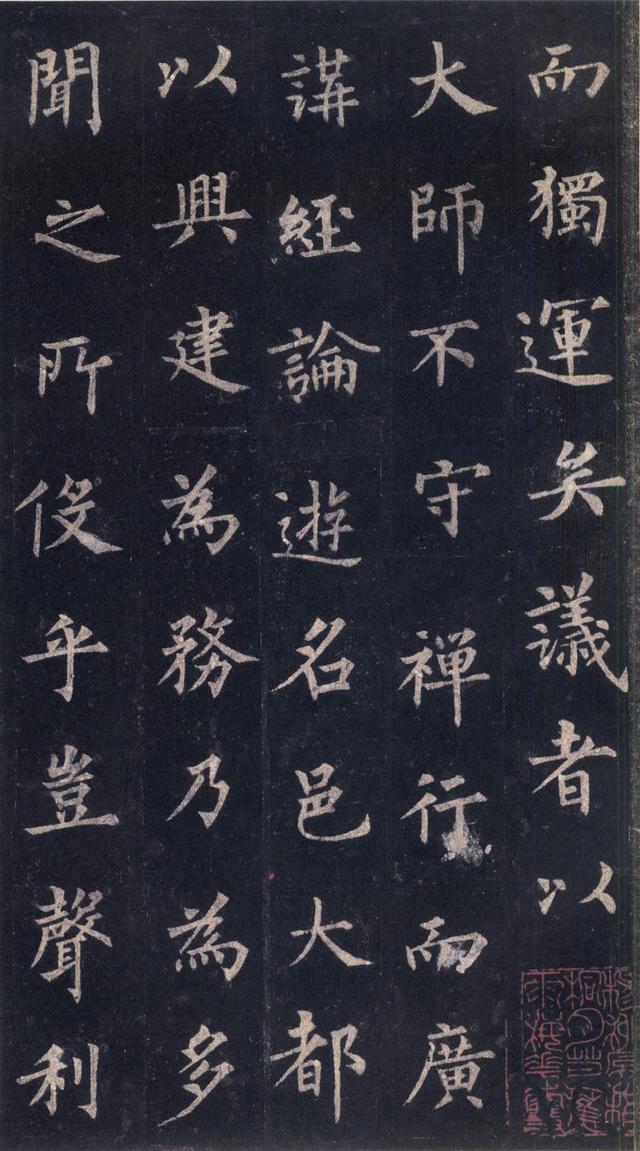 而獨運矣議者以
大師不守禅行而廣
講経論遊名邑大都
以興建為務乃為多
聞之所伇乎豈聲利